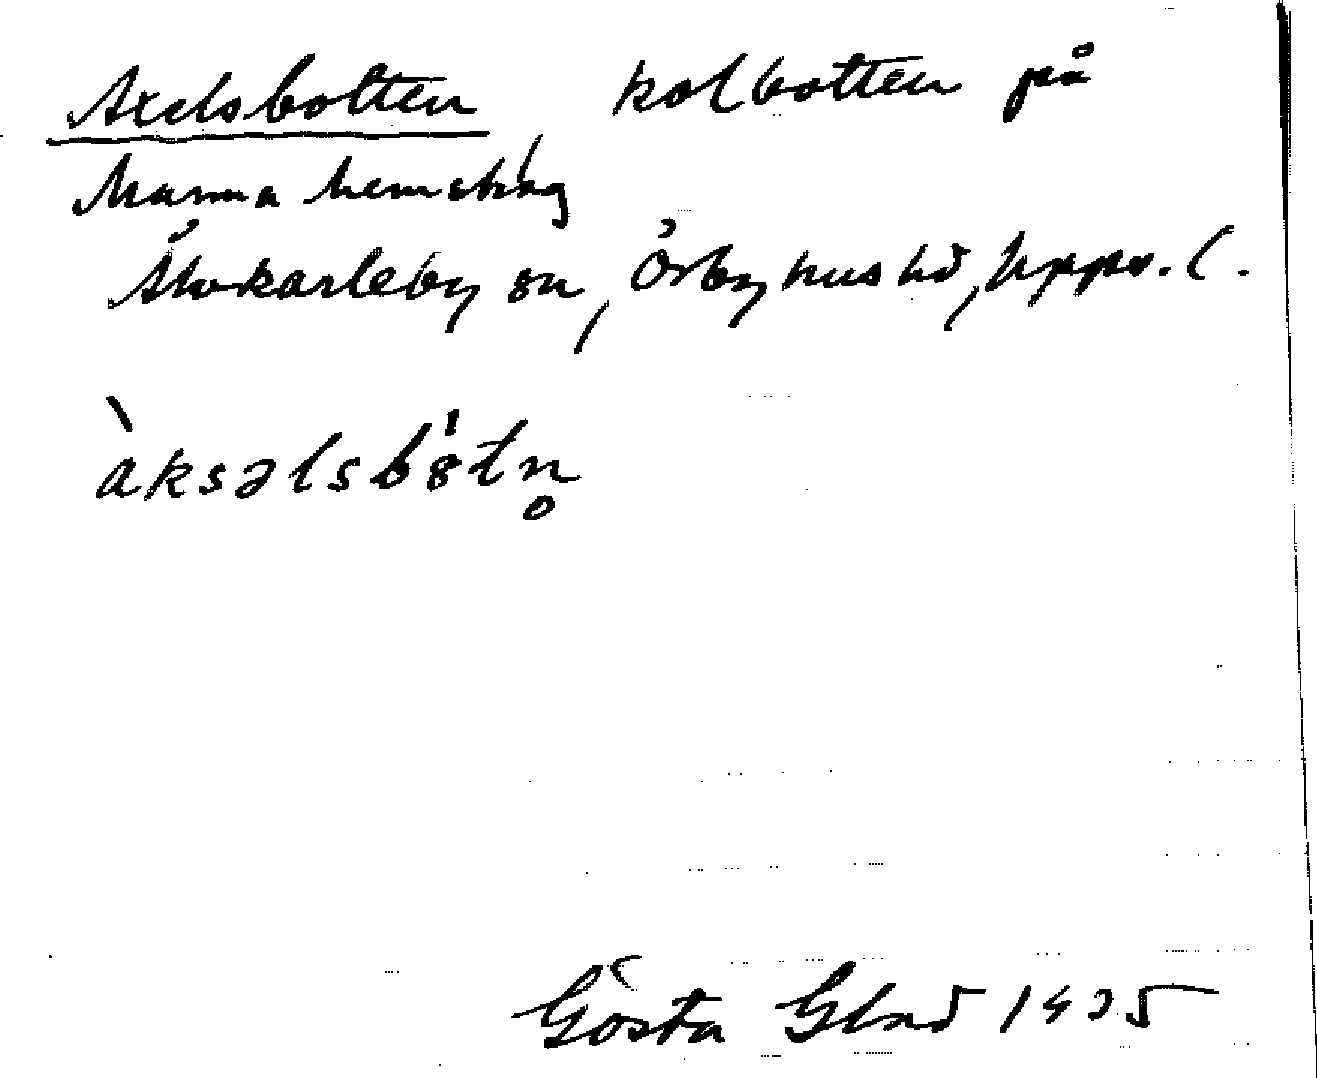 Axelsbotten, kolbotten på
Marma hemskog
Älvkarleby sn, Örbyhus hd, Upps. l.
àksəlsbȯtn̥
Gösta Glad 1935